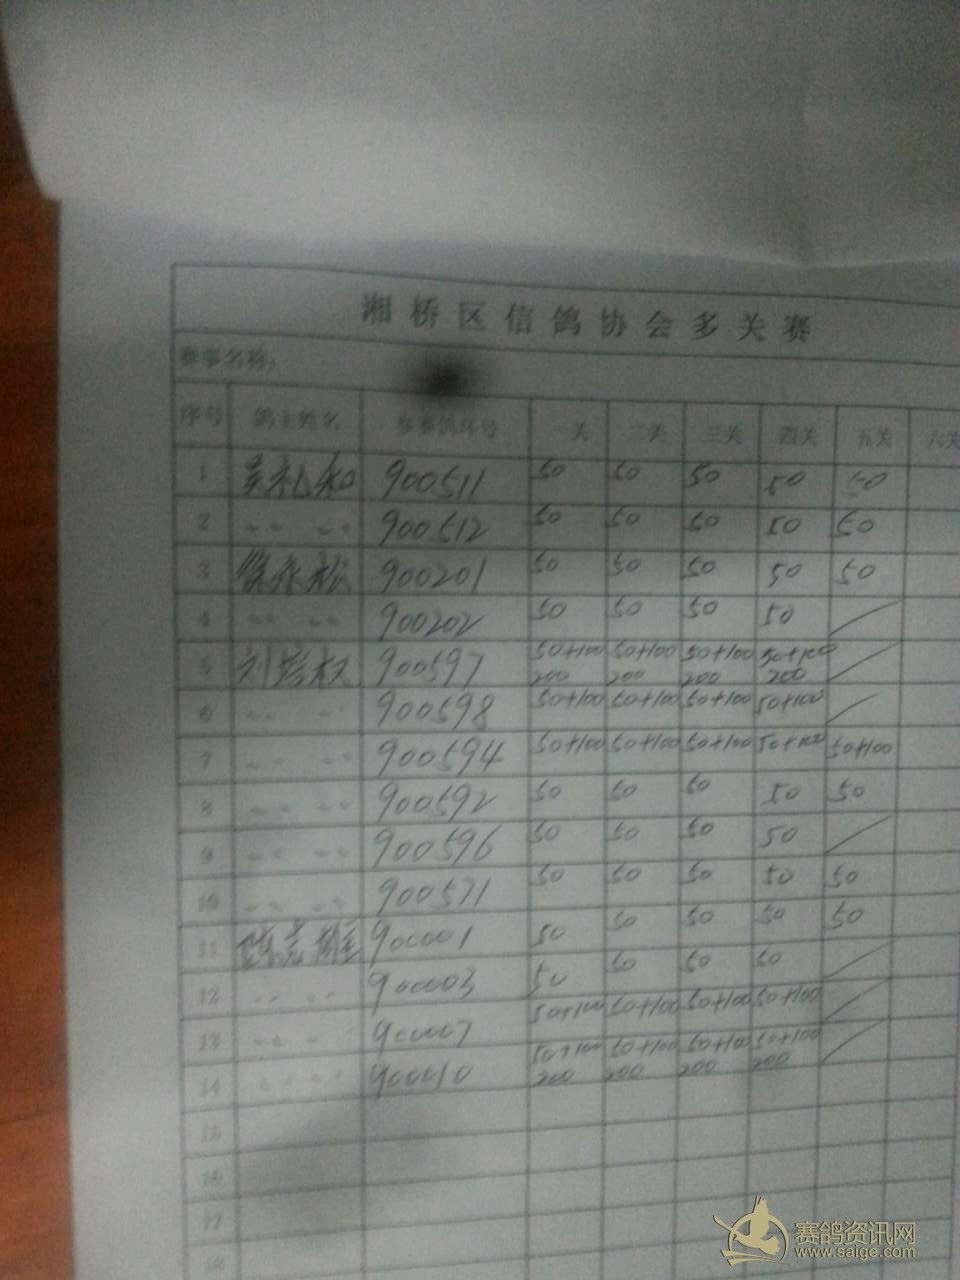 湘桥区信鸽协会多关赛
赛事名称:
序号 鸽主姓名 参赛鸽环号 一关 二关 三关 四关 五关 六关
1 吴礼和 900511 50 50 50 50 50
2 〃 〃 900512 50 50 50 50 50
3 徐永松 900201 50 50 50 50 50
4 〃 〃 900202 50 50 50 50 /
5 刘 权 900597 50+100 50+100 50+100 50+100 /
200 200 200 200
6 〃 〃 900598 50+100 50+100 50+100 50+100 /
7 〃 〃 900594 50+100 50+100 50+100 50+100 50+100
8 〃 〃 900592 50 50 50 50 50
9 〃 〃 900596 50 50 50 50 /
10 〃 〃 900571 50 50 50 50 50
11 陈 雄 900001 50 50 50 50 50
12 〃 〃 900003 50 50 50 50 /
13 〃 〃 900007 50+100 50+100 50+100 50+100 /
14 〃 〃 900010 50+100 50+100 50+100 50+100 /
200 200 200 200
15
16
17
18
赛鸽资讯网
www.saige.com